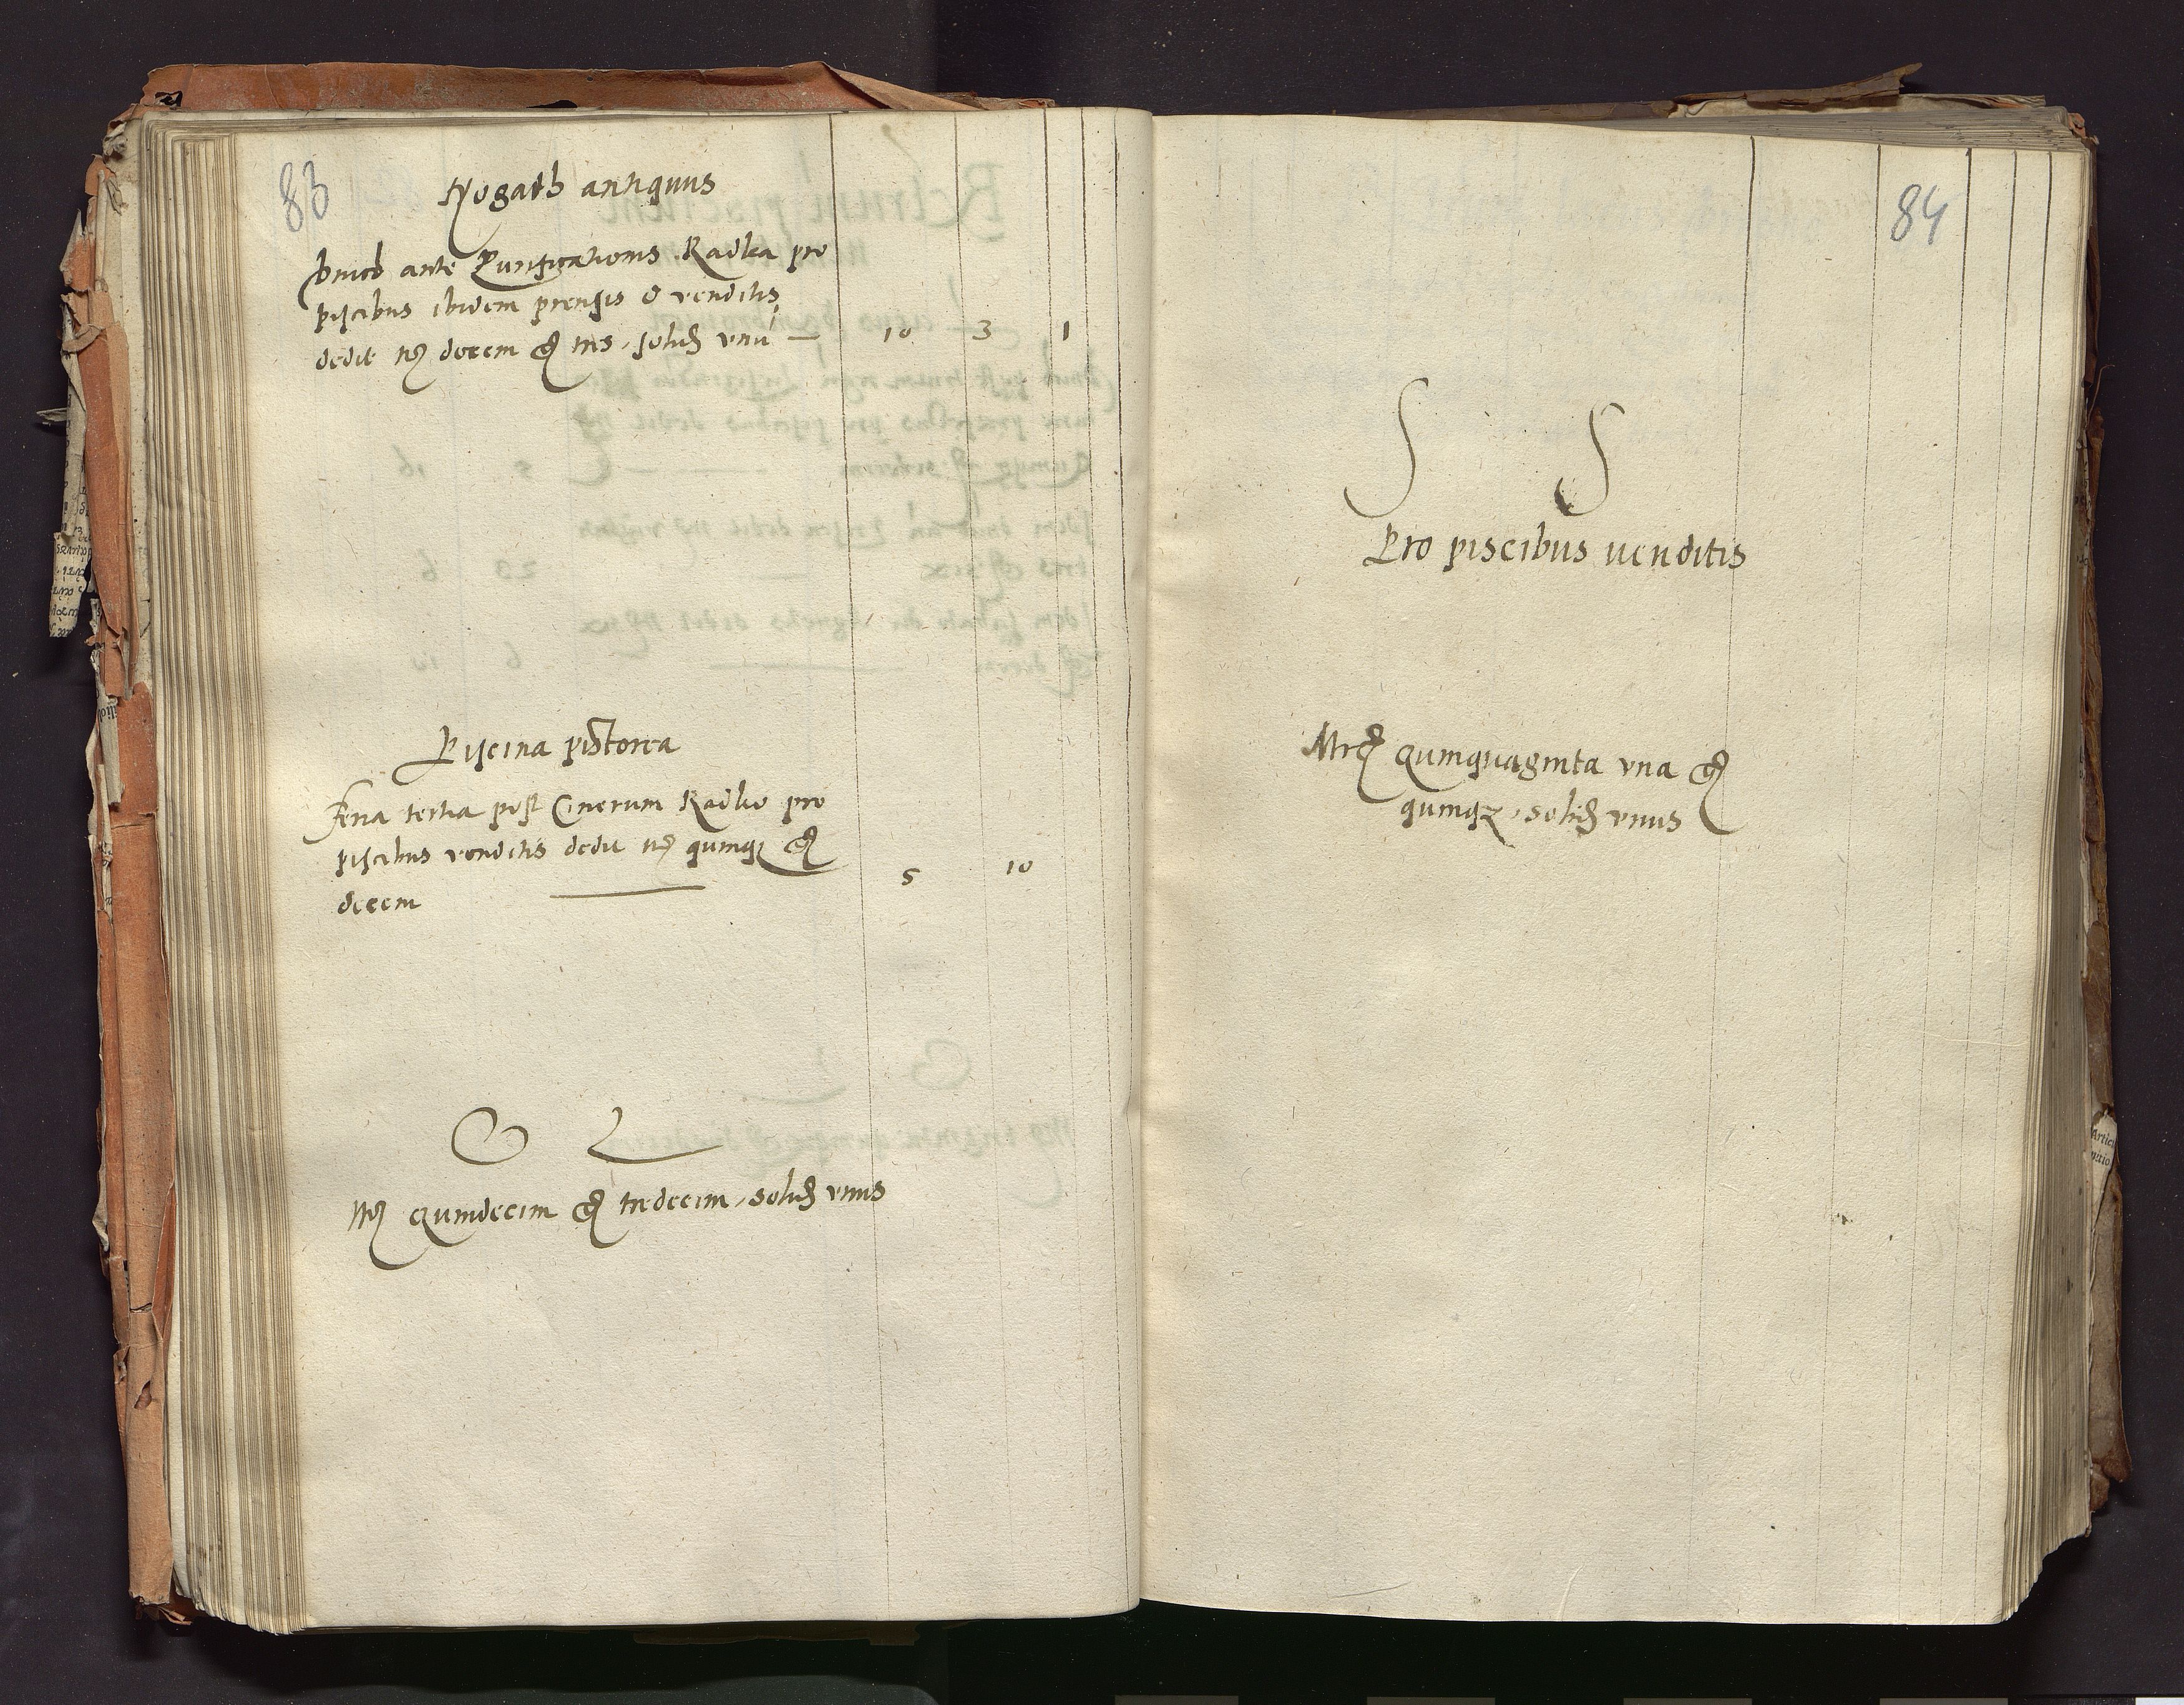 83
Nogath antiquus
Dnica ante Purificationis Radka pro
piscibus ibidem prensis & venditis
dedit mrc decem gr tres, solid unu — 10 3 1
Piscina pistorea
Feria tertia post Cinerum Radko pro
piscibus venditis dedit mrc quinqz gr
decem — 5 10
S L
Mrc Quindecim gr tredecim, solid unus
84
S S
Pro piscibus uenditis
Mrc Quinquaginta una gr
quinqz, solid unus